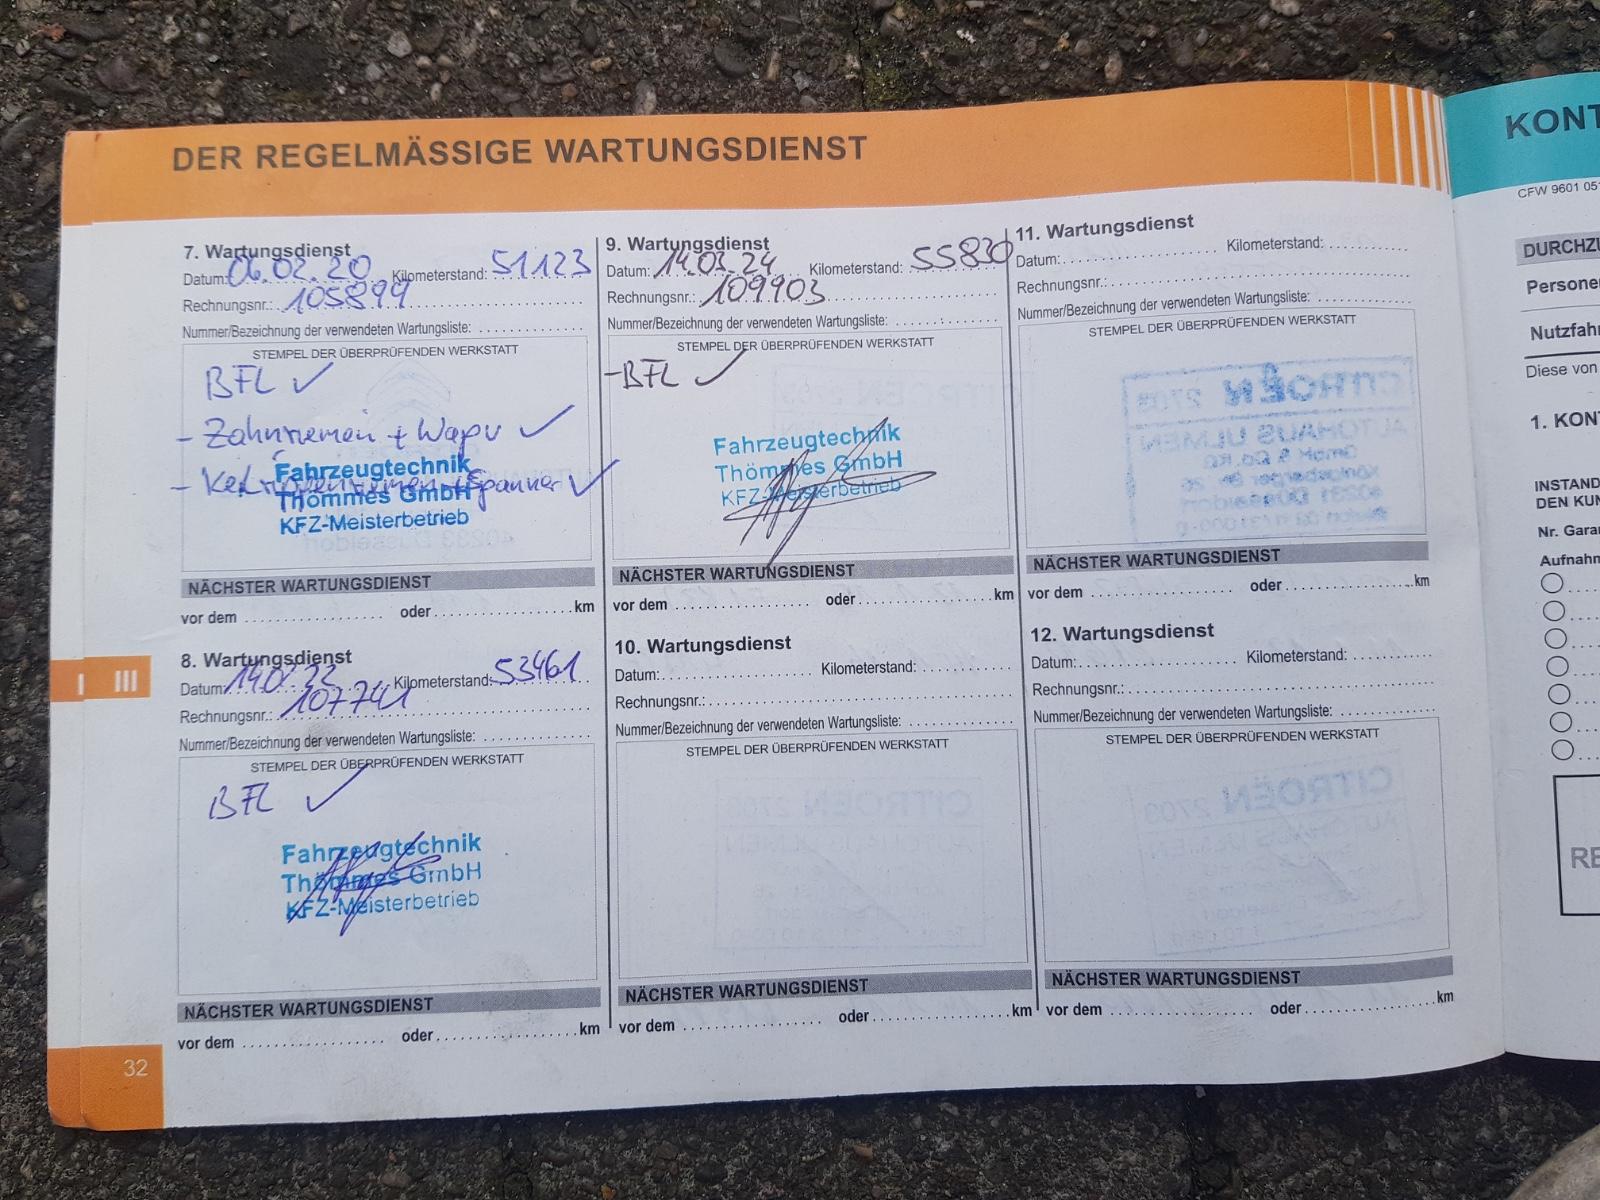 DER REGELMÄSSIGE WARTUNGSDIENST
7. Wartungsdienst
Datum: 06.02.20 Kilometerstand: 51123
Rechnungsnr.: 105899
Nummer/Bezeichnung der verwendeten Wartungsliste:
STEMPEL DER ÜBERPRÜFENDEN WERKSTATT
BFL ✓
- Zahnriemen + Wapu ✓
- Keilrippenriemen + Spanner ✓
Fahrzeugtechnik
Thömmes GmbH
KFZ-Meisterbetrieb
NÄCHSTER WARTUNGSDIENST
vor dem oder km
8. Wartungsdienst
Datum: Kilometerstand: 53461
Rechnungsnr.: 107741
Nummer/Bezeichnung der verwendeten Wartungsliste:
STEMPEL DER ÜBERPRÜFENDEN WERKSTATT
BFL ✓
Fahrzeugtechnik
Thömmes GmbH
KFZ-Meisterbetrieb
NÄCHSTER WARTUNGSDIENST
vor dem oder km
32
9. Wartungsdienst
Datum: 14.03.24 Kilometerstand: 55830
Rechnungsnr.: 109903
Nummer/Bezeichnung der verwendeten Wartungsliste:
STEMPEL DER ÜBERPRÜFENDEN WERKSTATT
-BFL ✓
Fahrzeugtechnik
Thömmes GmbH
KFZ-Meisterbetrieb
NÄCHSTER WARTUNGSDIENST
vor dem oder km
10. Wartungsdienst
Datum: Kilometerstand:
Rechnungsnr.:
Nummer/Bezeichnung der verwendeten Wartungsliste:
STEMPEL DER ÜBERPRÜFENDEN WERKSTATT
NÄCHSTER WARTUNGSDIENST
vor dem oder km
11. Wartungsdienst
Datum: Kilometerstand:
Rechnungsnr.:
Nummer/Bezeichnung der verwendeten Wartungsliste:
STEMPEL DER ÜBERPRÜFENDEN WERKSTATT
NÄCHSTER WARTUNGSDIENST
vor dem oder km
12. Wartungsdienst
Datum: Kilometerstand:
Rechnungsnr.:
Nummer/Bezeichnung der verwendeten Wartungsliste:
STEMPEL DER ÜBERPRÜFENDEN WERKSTATT
NÄCHSTER WARTUNGSDIENST
vor dem oder km
I III
KONT
CFW 9601 05
DURCHZU
Persone
Nutzfah
Diese von
1. KON
INSTAND
DEN KUN
Nr. Gara
Aufnahm
RE